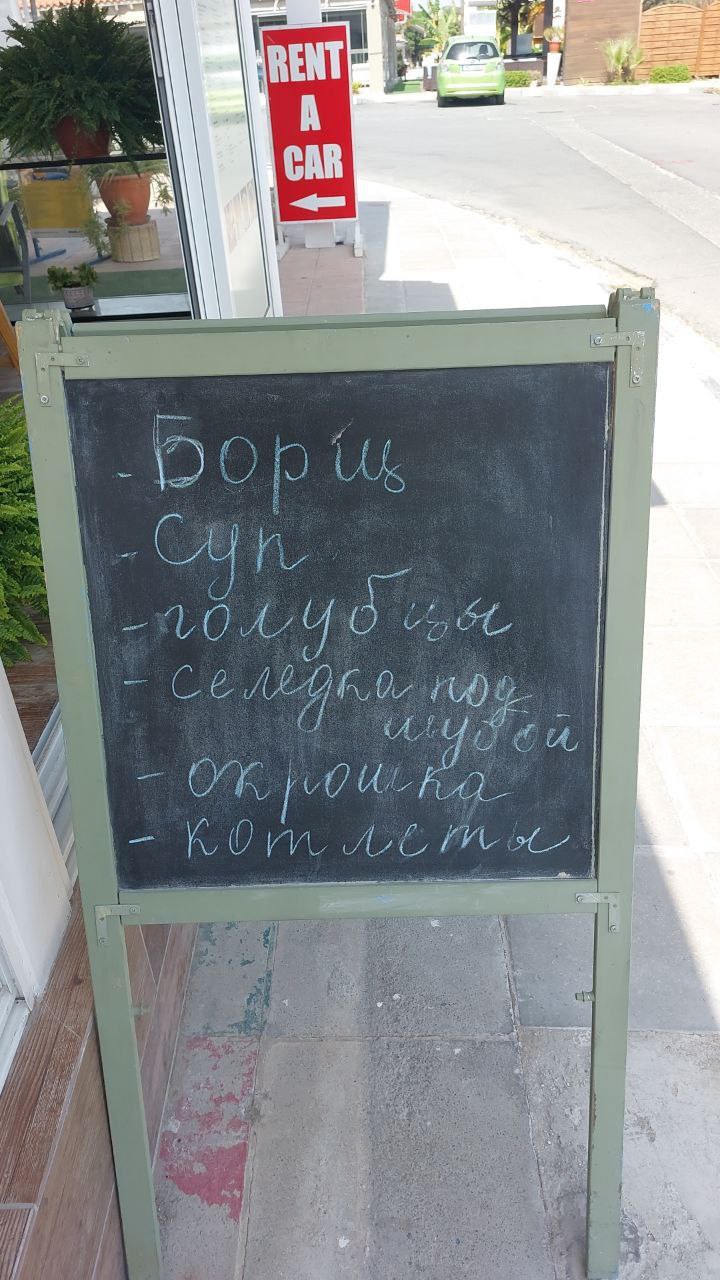 RENT
A
CAR
- Борщ
- Суп
- голубцы
- селедка под
шубой
- окрошка
- котлеты